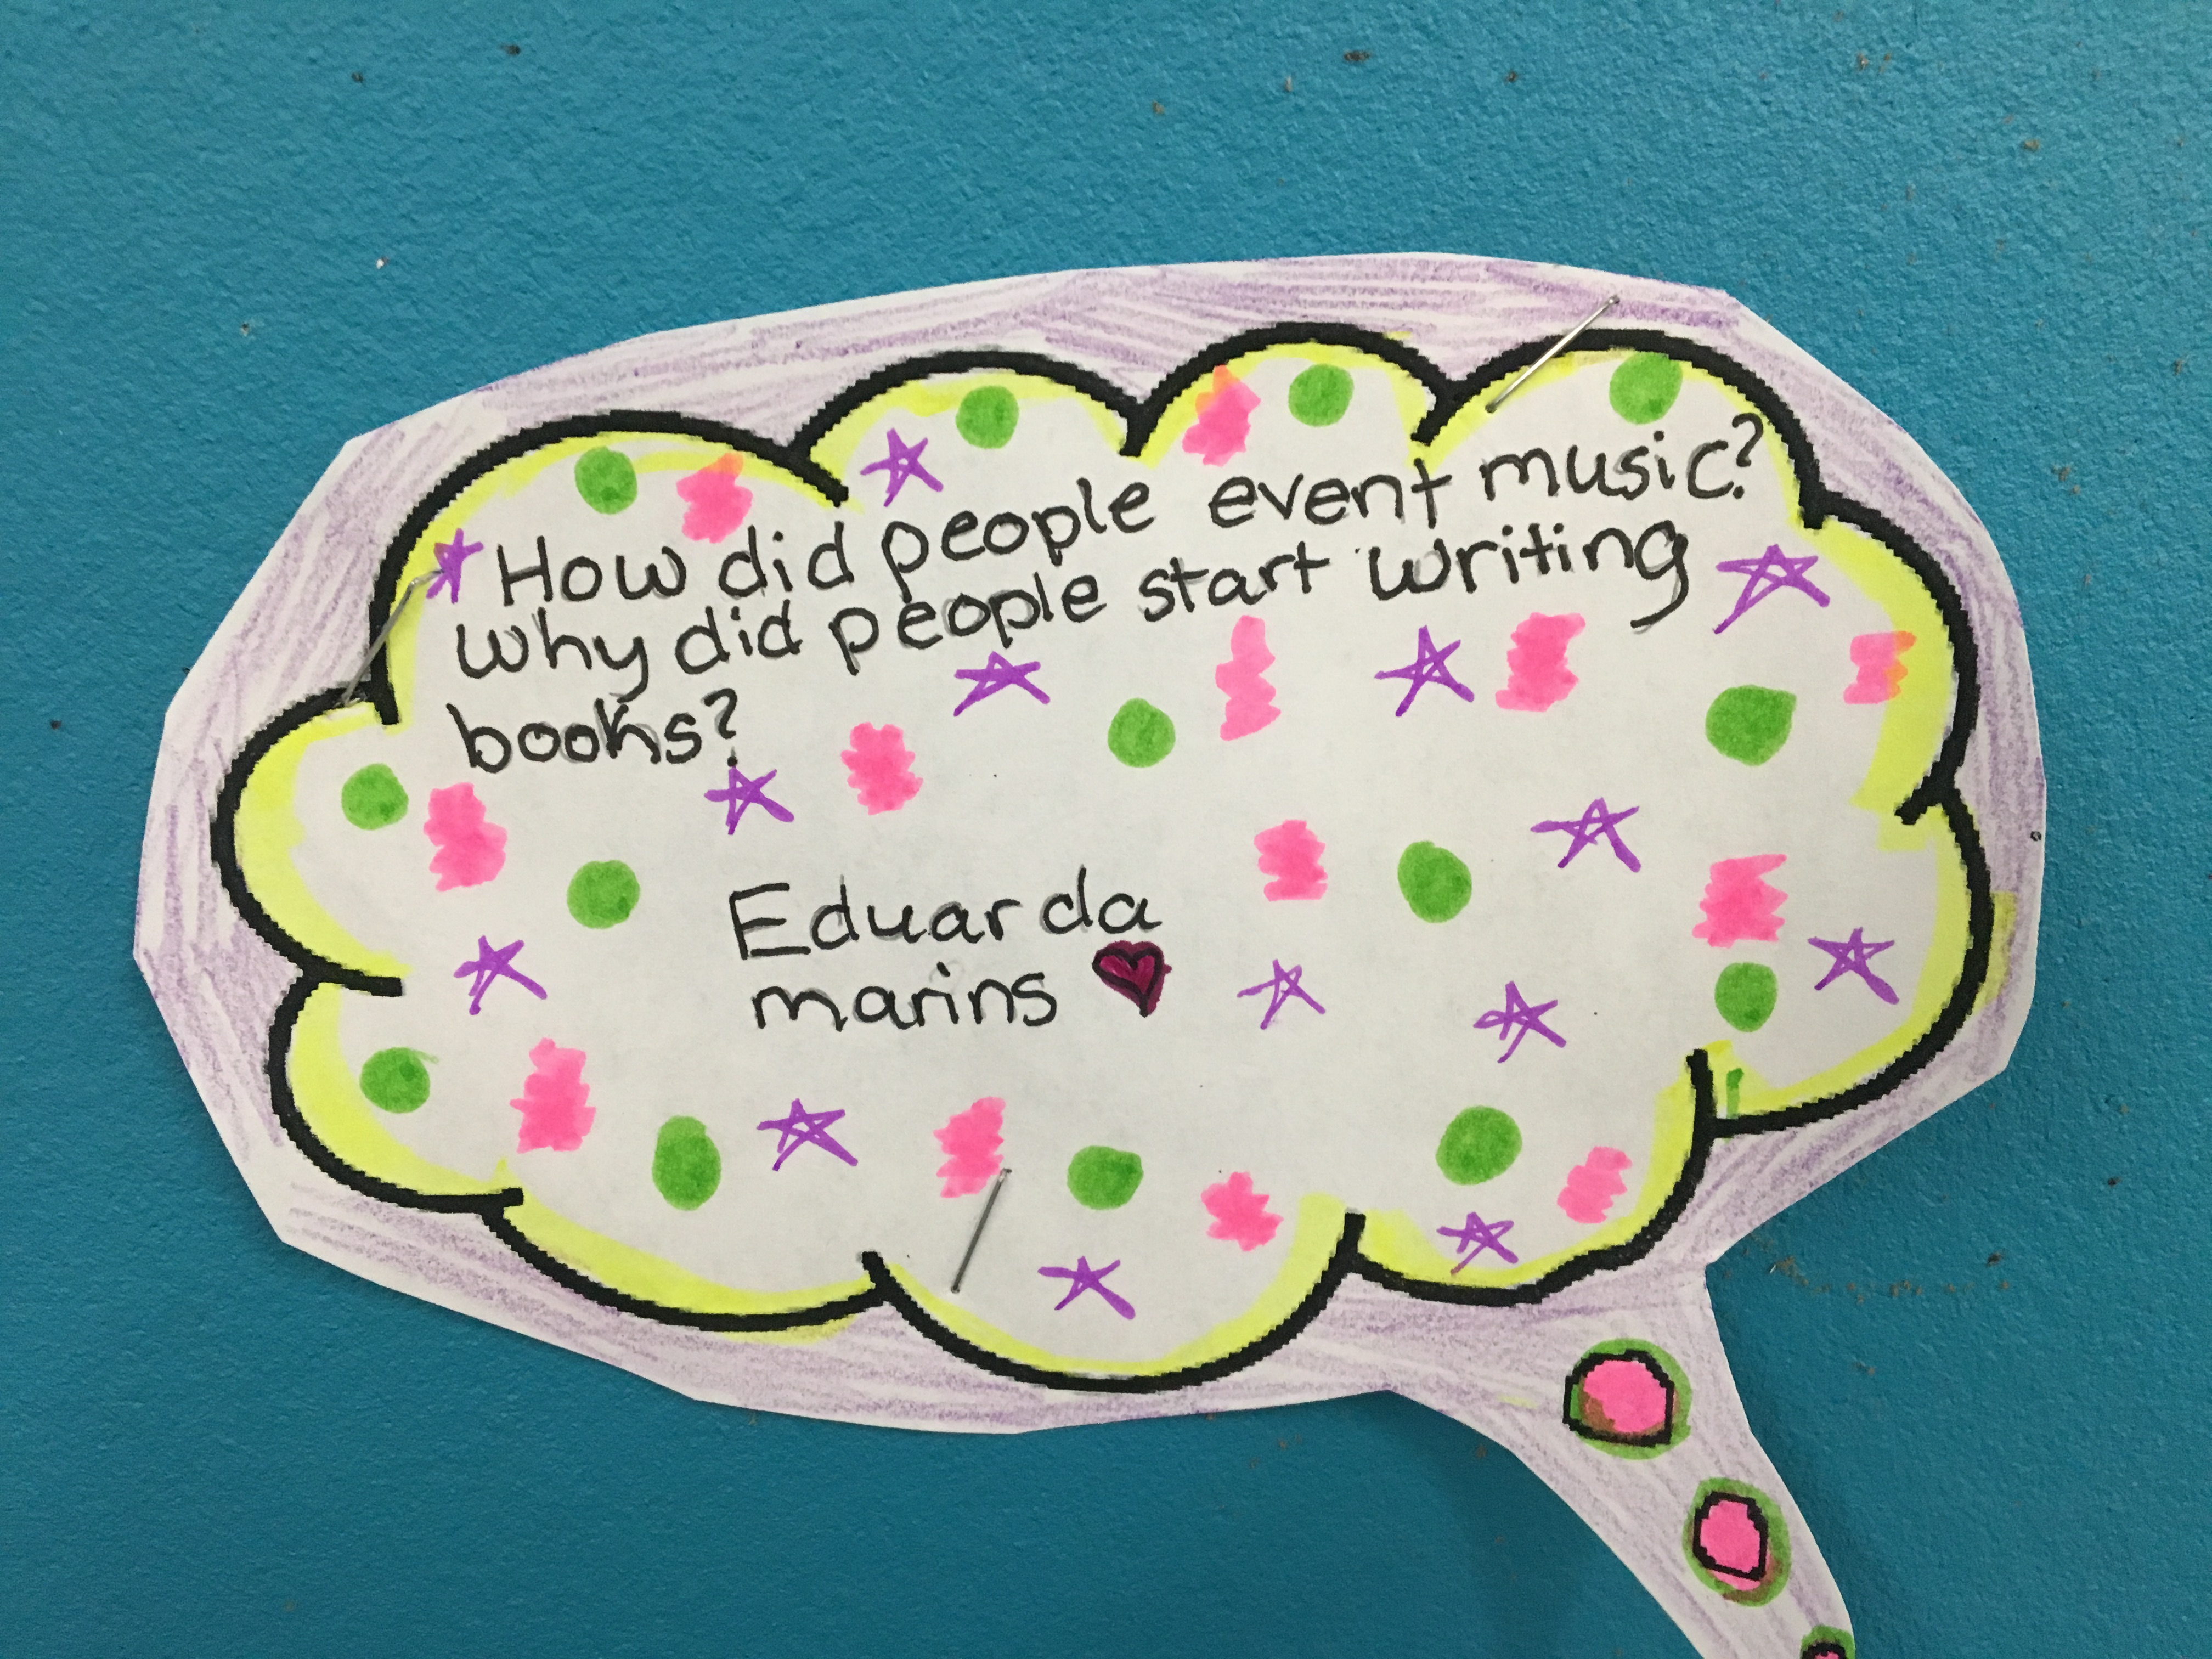 How did people event music?
why did people start writing
books?
Eduarda
marins